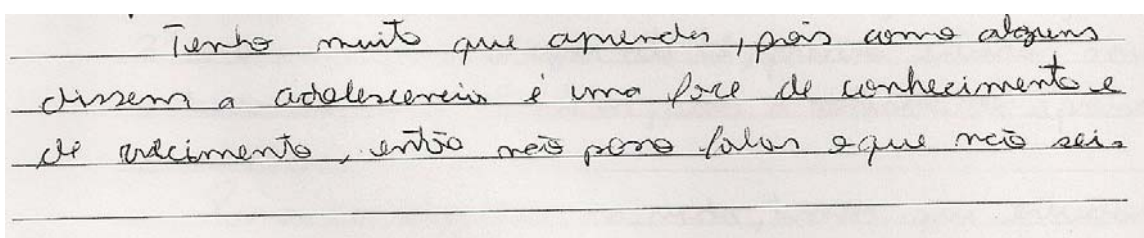 Tenho muito que aprender, pois como alguns
dissem a adolescencia é uma face de conhecimento e
de crecimento, então não posso falar o que não sei.